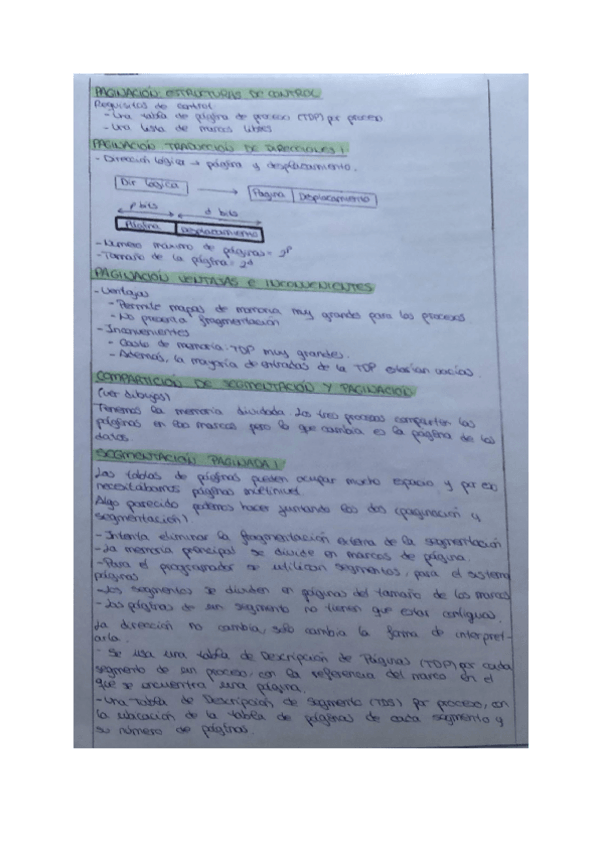 PAGINACIÓN: ESTRUCTURAS DE CONTROL
Requisitos de control
- Una tabla de página de proceso (TDP) por proceso
- Una lista de marcos libres
PAGINACIÓN TRADUCCIÓN DE DIRECCIONES:
- Dirección lógica → página y desplazamiento.
Dir lógica → Página | Desplazamiento
p bits d bits
Página | Desplazamiento
- Número máximo de páginas = 2^p
- Tamaño de la página = 2^d
PAGINACIÓN VENTAJAS E INCONVENIENTES
- Ventajas
- Permite mapas de memoria muy grandes para los procesos.
- No presenta fragmentación
- Inconvenientes
- Gasto de memoria: TDP muy grandes.
- Además, la mayoría de entradas de la TDP estarían vacías.
COMPARTICIÓN DE SEGMENTACIÓN Y PAGINACIÓN
(ver dibujos)
Tenemos la memoria dividida. Los tres procesos comparten las
páginas en los marcos pero lo que cambia es la página de los
datos.
SEGMENTACIÓN PAGINADA:
Las tablas de páginas pueden ocupar mucho espacio y por eso
necesitábamos páginas multinivel.
Algo parecido podemos hacer juntando los dos (paginación y
segmentación)
- Intenta eliminar la fragmentación externa de la segmentación
- La memoria principal se divide en marcos de página.
- Para el programador se utilizan segmentos, para el sistema
páginas
- Los segmentos se dividen en páginas del tamaño de los marcos
- Las páginas de un segmento no tienen que estar contiguas.
La dirección no cambia, solo cambia la forma de interpret-
arla.
- Se usa una tabla de Descripción de Páginas (TDP) por cada
segmento de un proceso, con la referencia del marco en el
que se encuentra una página.
- Una tabla de Descripción de segmento (TDS) por proceso, con
la ubicación de la tabla de páginas de cada segmento y
su número de páginas.